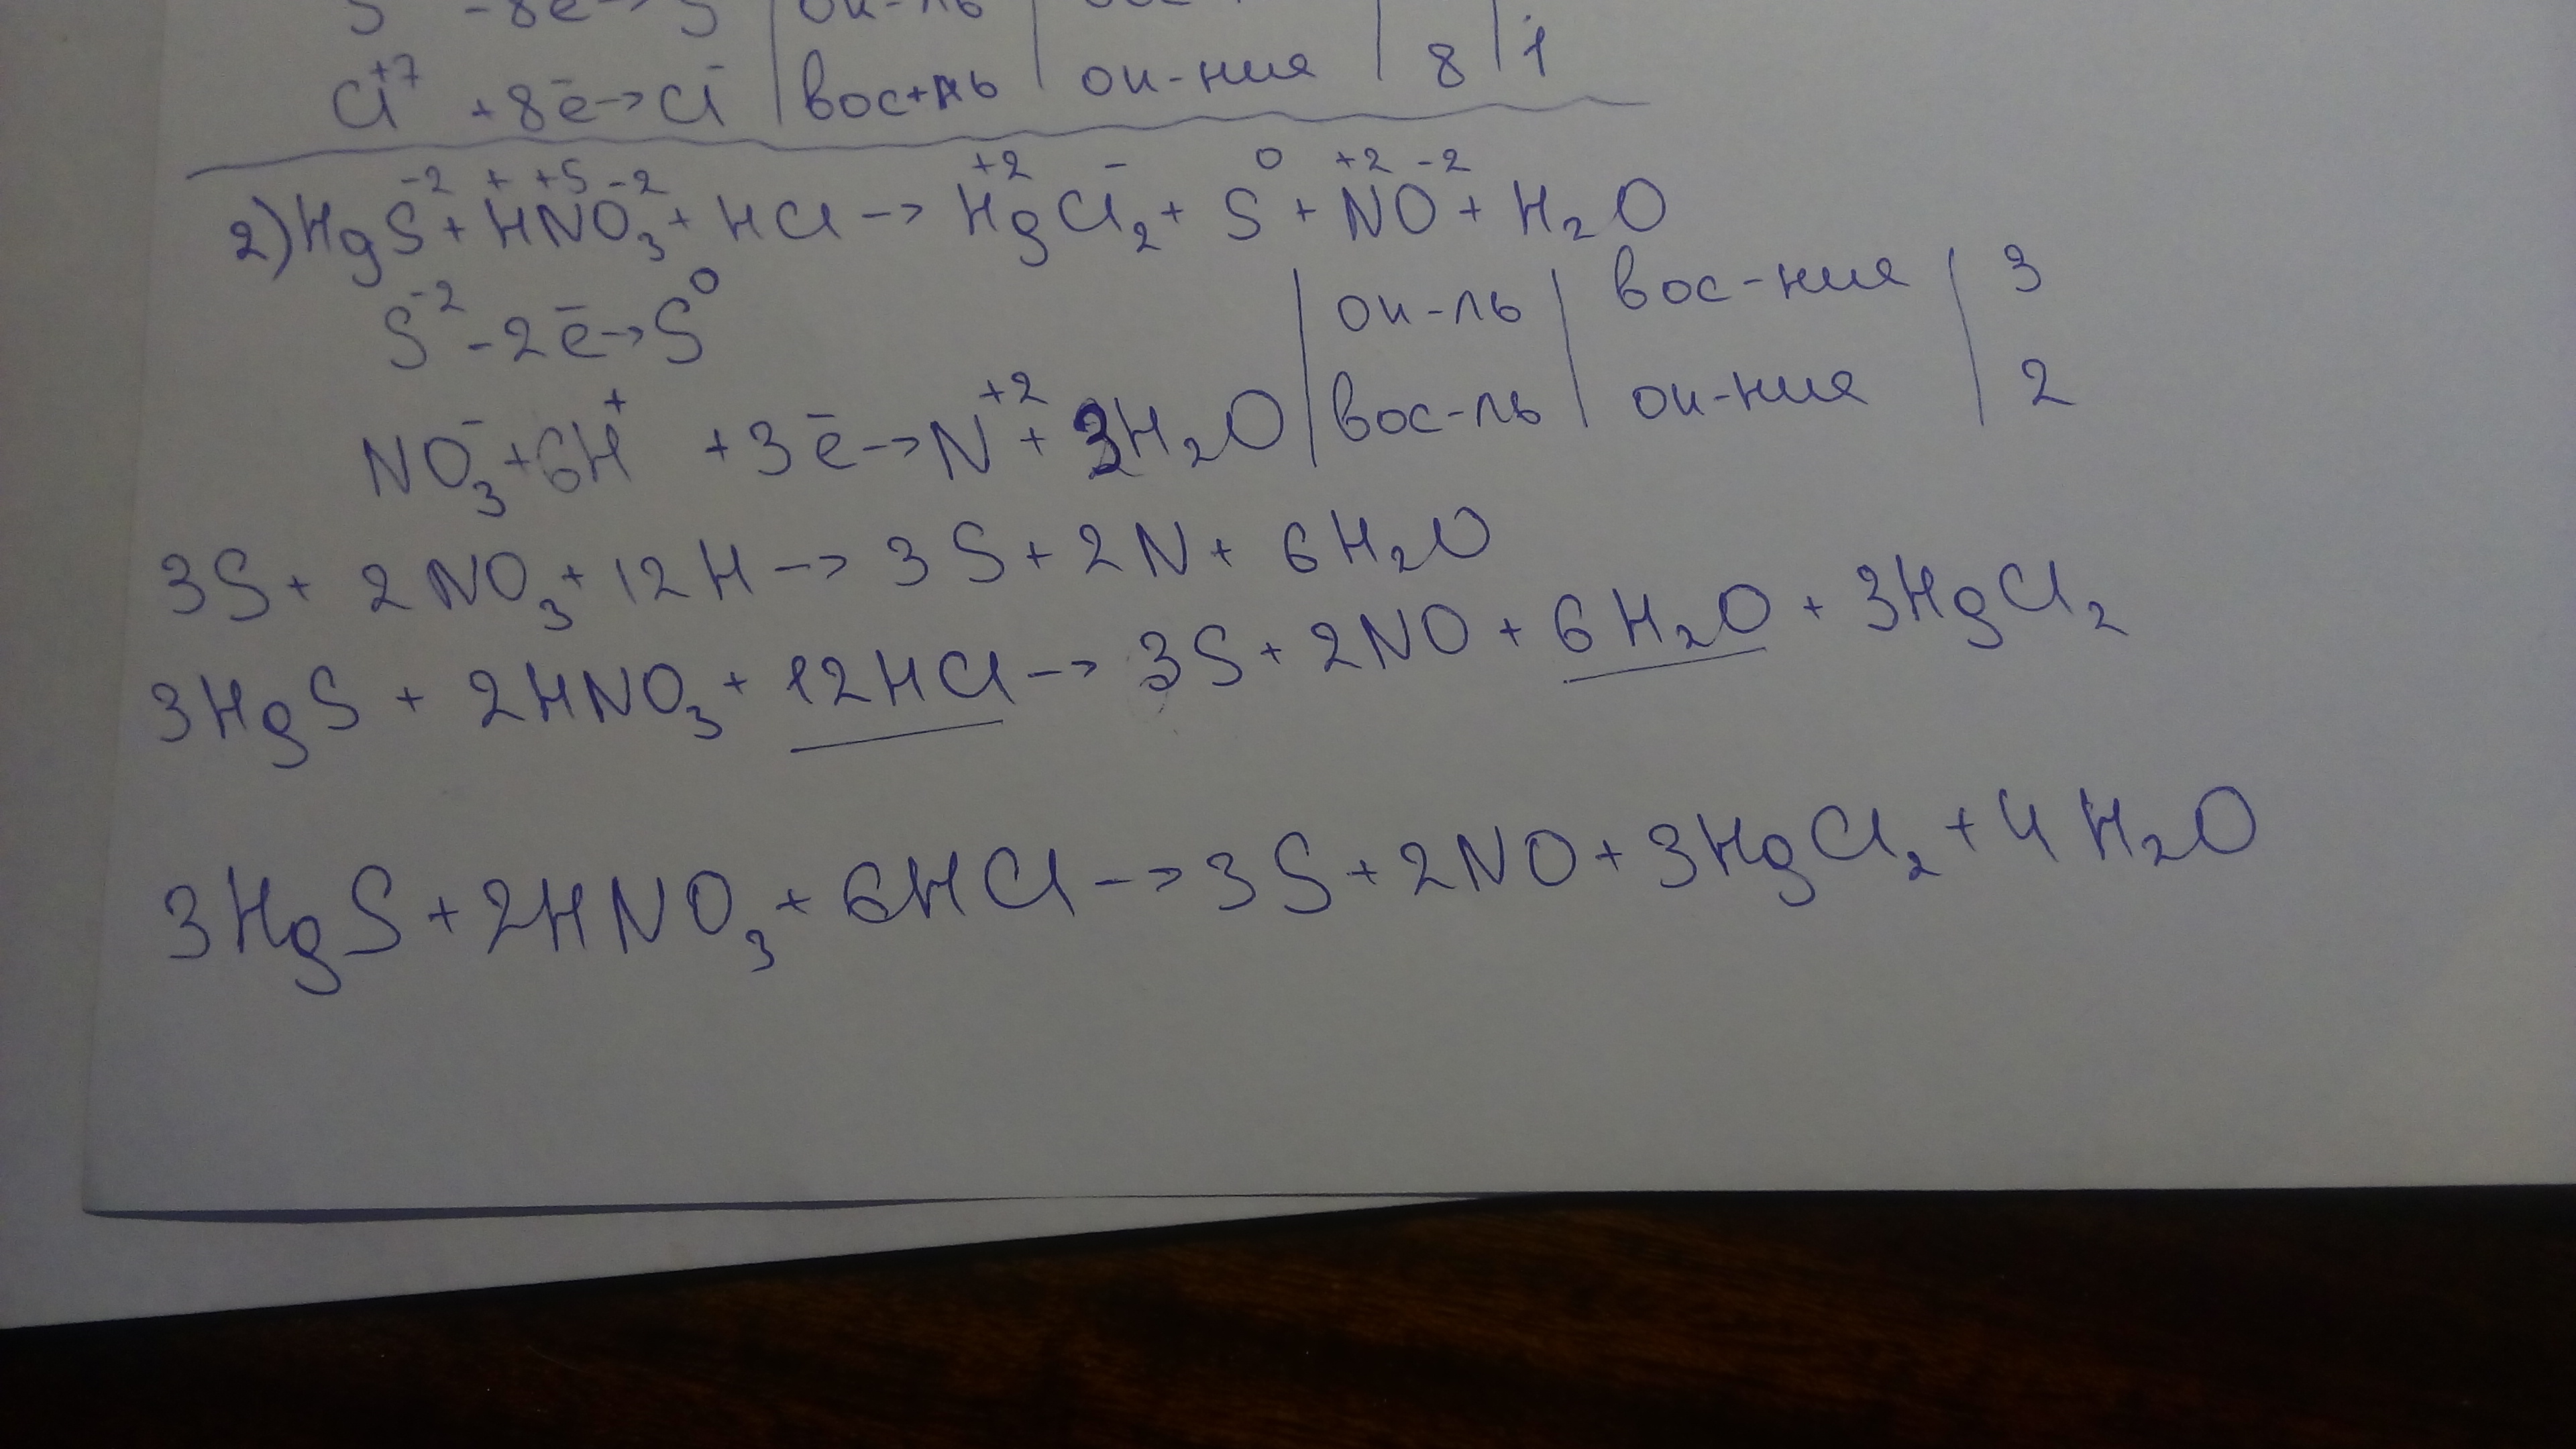 S -8ē→S | ок-ль |
Cl⁺⁷ +8ē→Cl⁻ | вос-ль | ок-ния | 8 | 1
2) HgS⁻² + H⁺N⁺⁵O₃⁻² + HCl → Hg⁺²Cl₂⁻ + S⁰ + N⁺²O⁻² + H₂O
S⁻² -2ē→S⁰ | ок-ль | вос-ния | 3
NO₃⁻ + 6H⁺ +3ē→N⁺² + 3H₂O | вос-ль | ок-ния | 2
3S + 2NO₃ + 12H → 3S + 2N + 6H₂O
3HgS + 2HNO₃ + 12HCl → 3S + 2NO + 6H₂O + 3HgCl₂
3HgS + 2HNO₃ + 6HCl → 3S + 2NO + 3HgCl₂ + 4H₂O